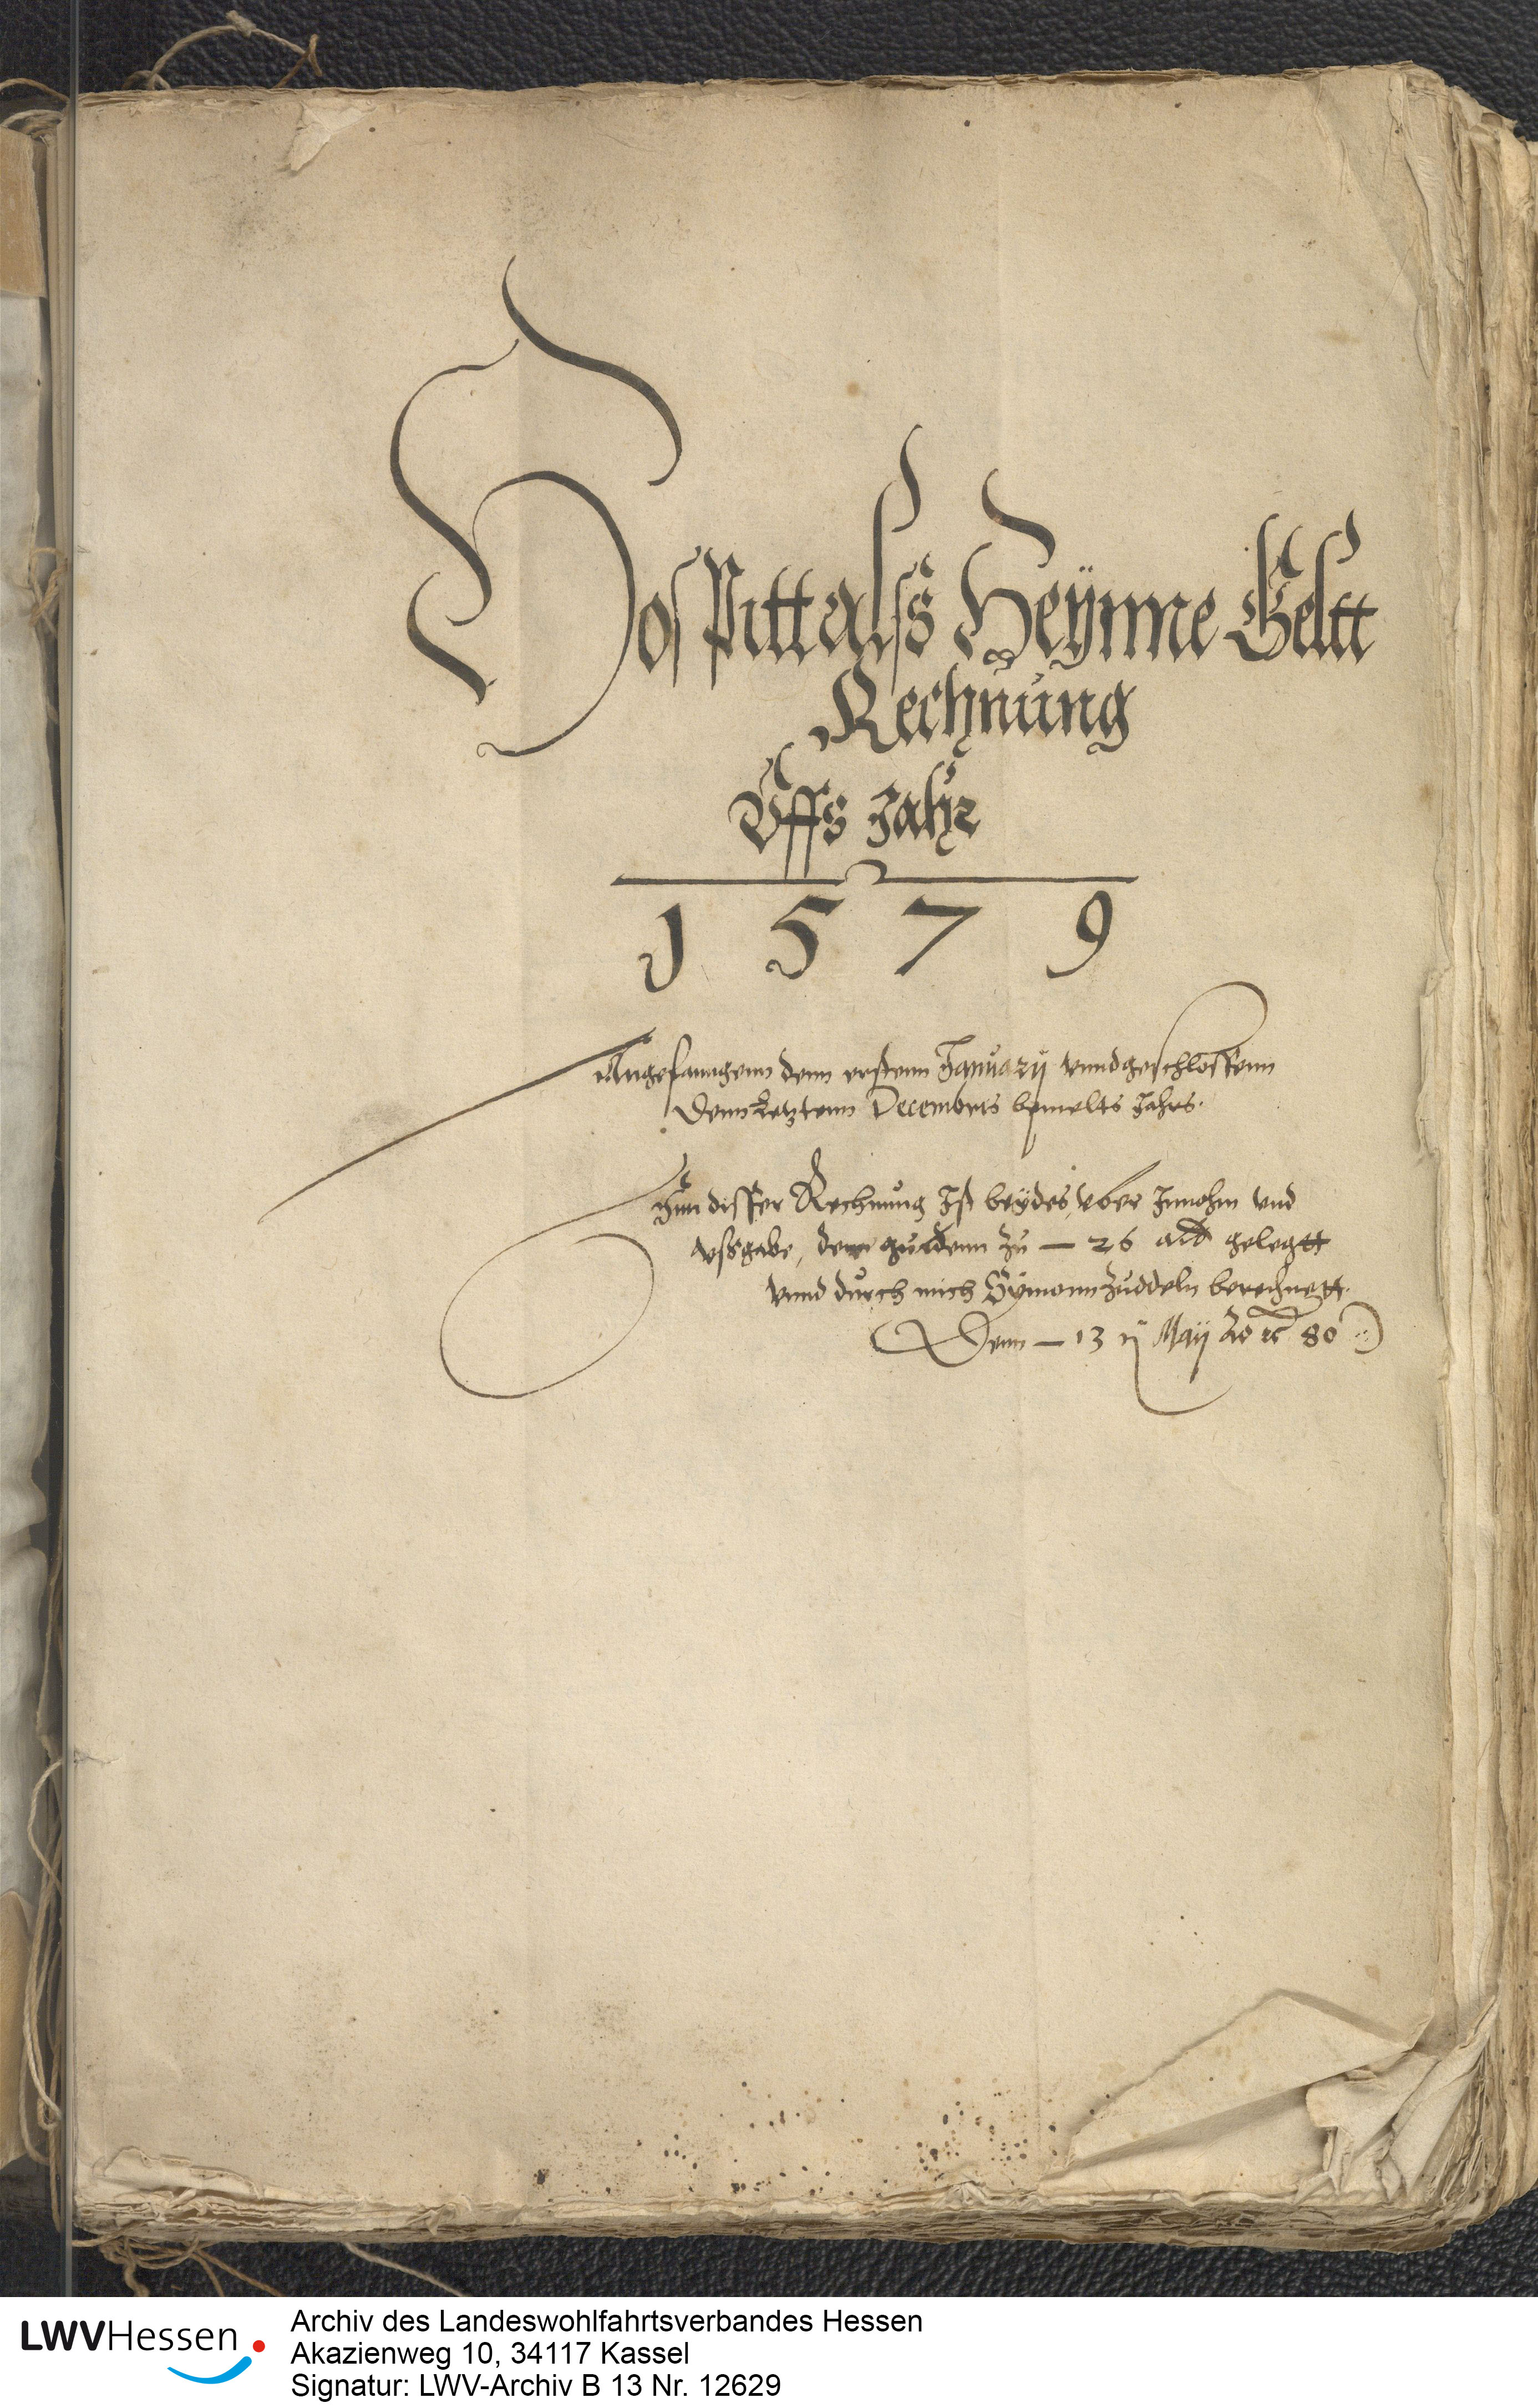 Hospittalß Heÿnne Geltt
Rechnung
Vffs Jahr
1579
Angefanngenn denn erstenn Januarij vnnd geschlossenn
Denn Letztenn Decembris bemelts Jahrs.
Inn disser Rechnung Ist beÿdes, vber Innahm vnd
vßgabe, denn guldenn zu — 26 alb gelegtt
vnnd durch mich Sÿmonn Juddeln berechnett.
Denn — 13 Maij Ao 80
LWVHessen
Archiv des Landeswohlfahrtsverbandes Hessen
Akazienweg 10, 34117 Kassel
Signatur: LWV-Archiv B 13 Nr. 12629